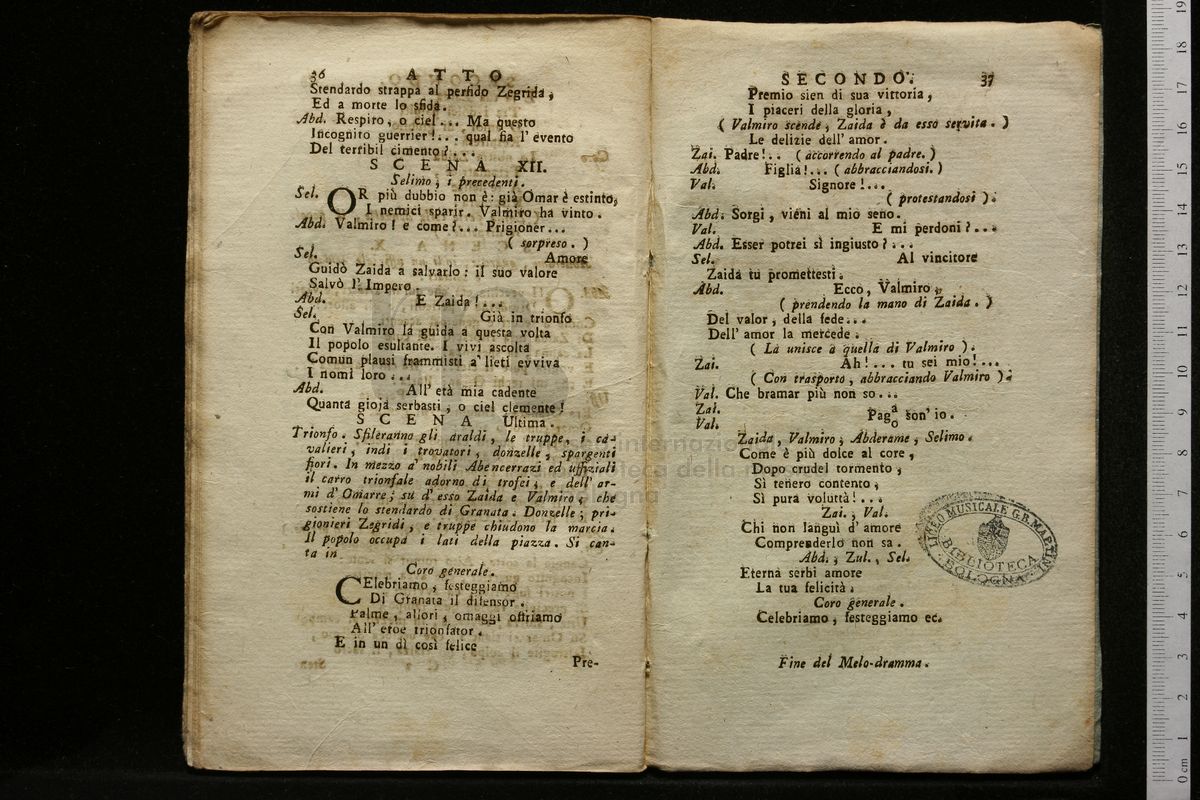 36 ATTO
Stendardo strappa al perfido Zegrida,
Ed a morte lo sfida.
Abd. Respiro, o ciel... Ma questo
Incognito guerrier!... qual fia l'evento
Del terribil cimento?...
SCENA XII.
Selimo, i precedenti.
Sel. OR più dubbio non è: già Omar è estinto,
I nemici sparir. Valmiro ha vinto.
Abd. Valmiro! e come?... Prigioner...
(sorpreso.)
Sel. Amore
Guidò Zaida a salvarlo: il suo valore
Salvò l'Impero.
Abd. E Zaida!...
Sel. Già in trionfo
Con Valmiro la guida a questa volta
Il popolo esultante. I vivi ascolta
Comun plausi frammisti a' lieti evviva
I nomi loro...
Abd. All'età mia cadente
Quanta gioja serbasti, o ciel clemente!
SCENA Ultima.
Trionfo. Sfileranno gli araldi, le truppe, i ca-
valieri, indi i trovatori, donzelle, spargenti
fiori. In mezzo a' nobili Abencerrazi ed uffiziali
il carro trionfale adorno di trofei, e dell'ar-
mi d'Omarre; su d'esso Zaida e Valmiro, che
sostiene lo stendardo di Granata. Donzelle; pri-
gionieri Zegridi, e truppe chiudono la marcia.
Il popolo occupa i lati della piazza. Si can-
ta in
Coro generale.
CElebriamo, festeggiamo
Di Granata il difensor.
Palme, allori, omaggi offriamo
All'eroe trionfator.
E in un dì così felice
Pre-
SECONDO. 37
Premio sien di sua vittoria,
I piaceri della gloria,
(Valmiro scende, Zaida è da esso servita.)
Le delizie dell'amor.
Zai. Padre!.. (accorrendo al padre.)
Abd. Figlia!... (abbracciandosi.)
Val. Signore!...
(protestandosi).
Abd. Sorgi, vieni al mio seno.
Val. E mi perdoni?...
Abd. Esser potrei sì ingiusto?...
Sel. Al vincitore
Zaida tu promettesti.
Abd. Ecco, Valmiro,
(prendendo la mano di Zaida.)
Del valor, della fede...
Dell'amor la mercede.
(La unisce a quella di Valmiro).
Zai. Ah!... tu sei mio!...
(Con trasporto, abbracciando Valmiro).
Val. Che bramar più non so...
Zai. a
Pag son'io.
Val. o
Zaida, Valmiro, Abderame, Selimo.
Come è più dolce al core,
Dopo crudel tormento,
Sì tenero contento,
Sì pura voluttà!...
Zai., Val.
Chi non languì d'amore
Comprenderlo non sa.
Abd., Zul., Sel.
Eterna serbi amore
La tua felicità.
Coro generale.
Celebriamo, festeggiamo ec.
Fine del Melo-dramma.
LICEO MUSICALE G.B. MARTINI
BIBLIOTECA
BOLOGNA
internazio
oteca della
gna
19
18
17
16
15
14
13
12
11
10
9
8
7
6
5
4
3
2
1
0 cm